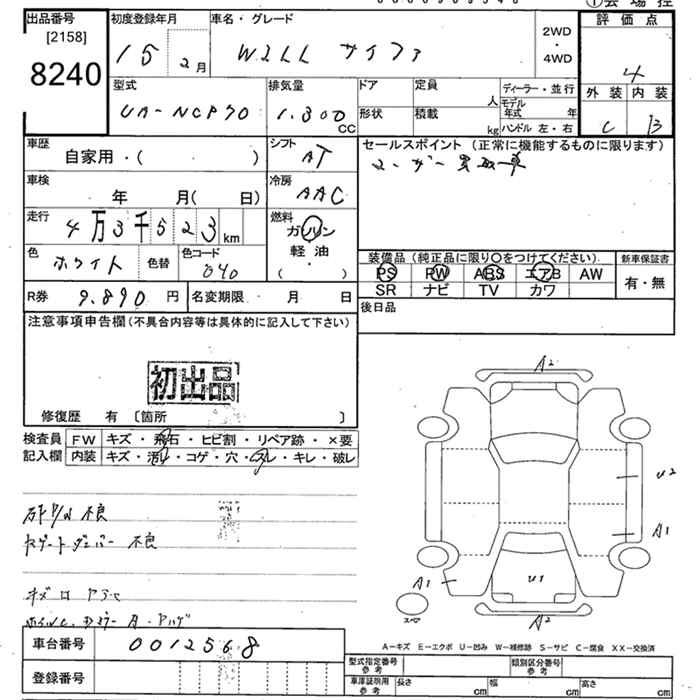 出品番号 初度登録年月 車名・グレード 2WD 評価点
[2158] 15 2月 WiLL サイファ ・ 4
8240 4WD 外装 内装
型式 排気量 ドア 定員 人 ディーラー・並行 C B
UA-NCP70 1.300 CC 形状 積載 kg モデル年式 年
ハンドル 左・右
車歴 シフト セールスポイント (正常に機能するものに限ります)
自家用・( ) AT ユーザー買取車
車検 冷房
年 月( 日) AAC
走行 4万3千523km 燃料
ガソリン
色 ホワイト 色替 色コード 040 軽油
・
( )
装備品 (純正品に限り○をつけてください) 新車保証書
PS PW ABS エアB AW 有・無
SR ナビ TV カワ
R券 9.890 円 名変期限 ・ 月 日 後日品
注意事項申告欄(不具合内容等は具体的に記入して下さい)
初出品
修復歴 有 〔箇所 〕
検査員 FW キズ・飛石・ヒビ割・リペア跡・×要
記入欄 内装 キズ・汚レ・コゲ・穴・スレ・キレ・破レ
不良
不良
A2
U2
A1
A1
U1
A2
スペア
車台番号 0012568
登録番号
A-キズ E-エクボ U-凹み W-補修跡 S-サビ C-腐食 XX-交換済
型式指定番号 参考 類別区分番号 参考
車庫証明用 参考 長さ cm 幅 cm 高さ cm